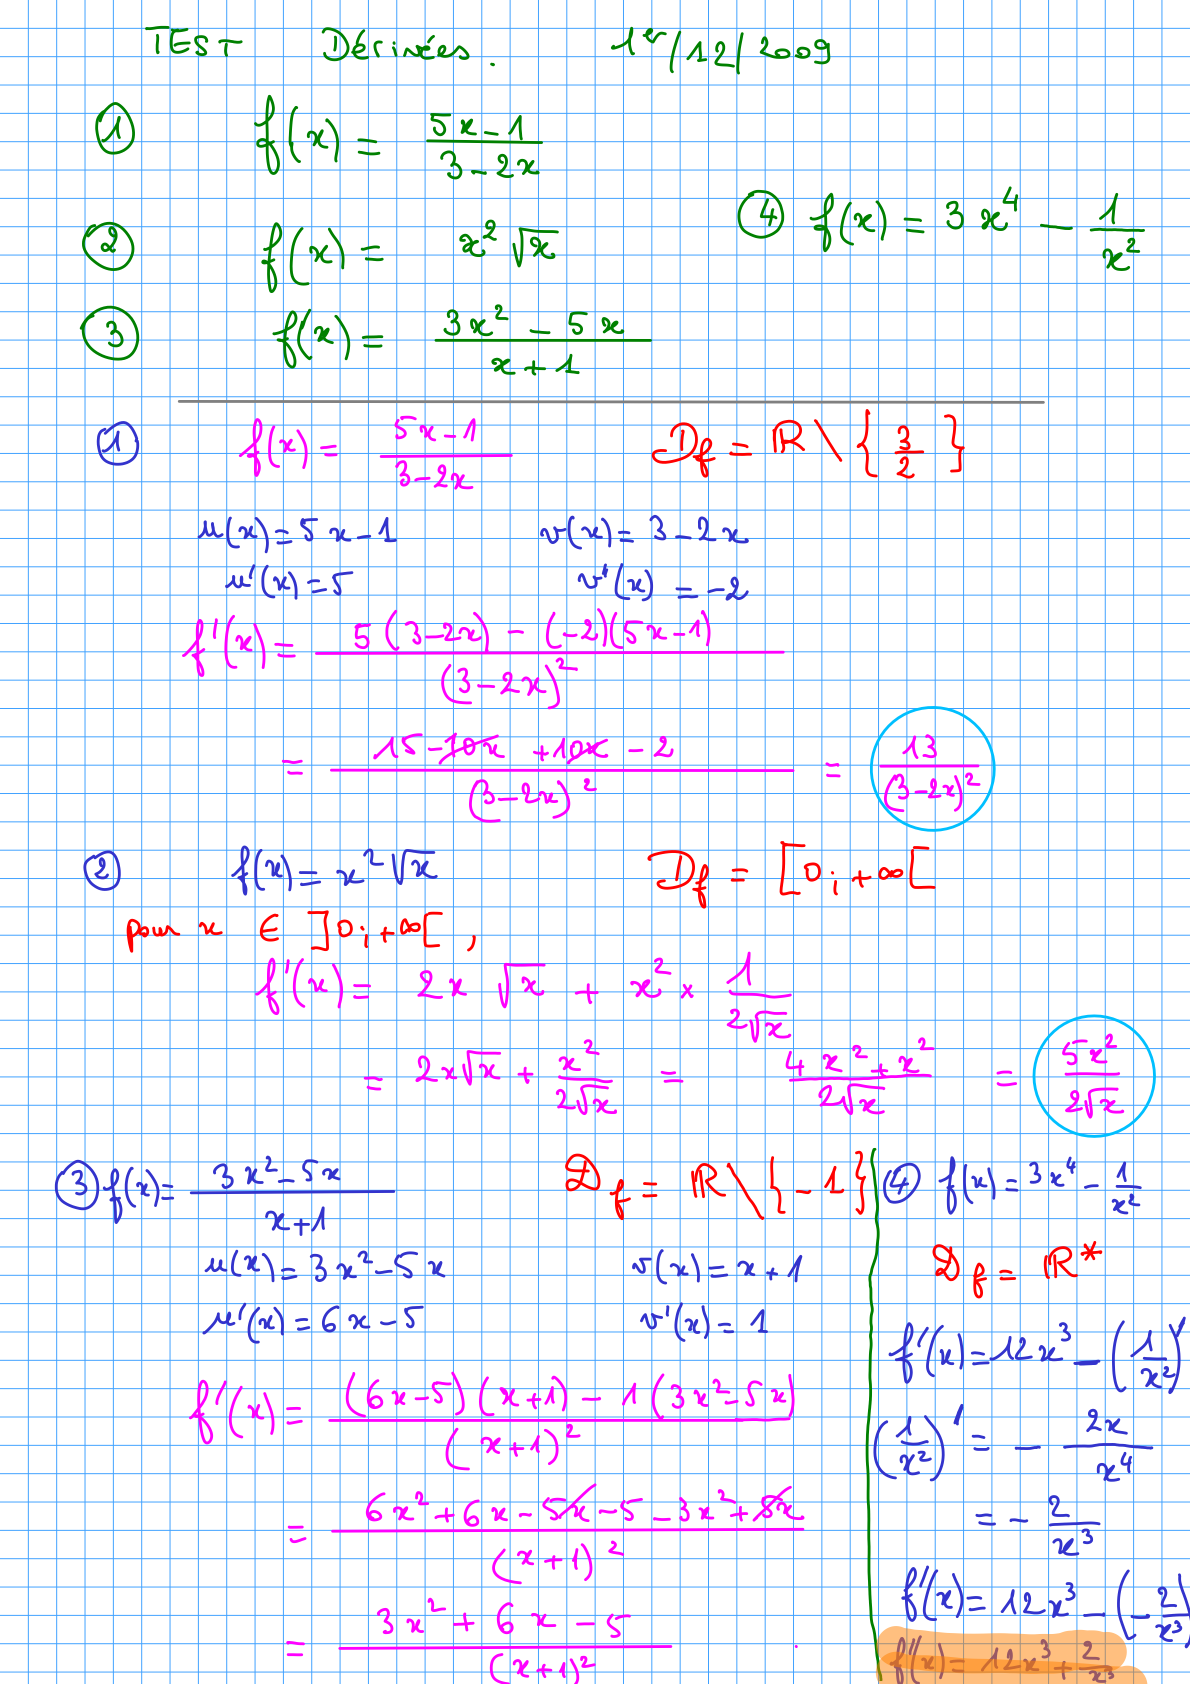 TEST Dérivées. 1er/12/2009
① f(x) = (5x-1)/(3-2x)
② f(x) = x² √x
③ f(x) = (3x² - 5x)/(x+1)
④ f(x) = 3x⁴ - 1/x²
① f(x) = (5x-1)/(3-2x) Df = ℝ \ { 3/2 }
u(x) = 5x-1 v(x) = 3-2x
u'(x) = 5 v'(x) = -2
f'(x) = (5(3-2x) - (-2)(5x-1))/(3-2x)²
= (15-10x+10x-2)/(3-2x)² = 13/(3-2x)²
② f(x) = x² √x Df = [0;+∞[
pour x ∈ ]0;+∞[ ,
f'(x) = 2x √x + x² × 1/(2√x)
= 2x√x + x²/(2√x) = (4x²+x²)/(2√x) = 5x²/(2√x)
③ f(x) = (3x²-5x)/(x+1) Df = ℝ \ {-1}
u(x) = 3x²-5x v(x) = x+1
u'(x) = 6x-5 v'(x) = 1
f'(x) = ((6x-5)(x+1) - 1(3x²-5x))/(x+1)²
= (6x²+6x-5x-5-3x²+5x)/(x+1)²
= (3x²+6x-5)/(x+1)²
④ f(x) = 3x⁴ - 1/x²
Df = ℝ*
f'(x) = 12x³ - (1/x²)'
(1/x²)' = - 2x/x⁴
= - 2/x³
f'(x) = 12x³ - (-2/x³)
f'(x) = 12x³ + 2/x³